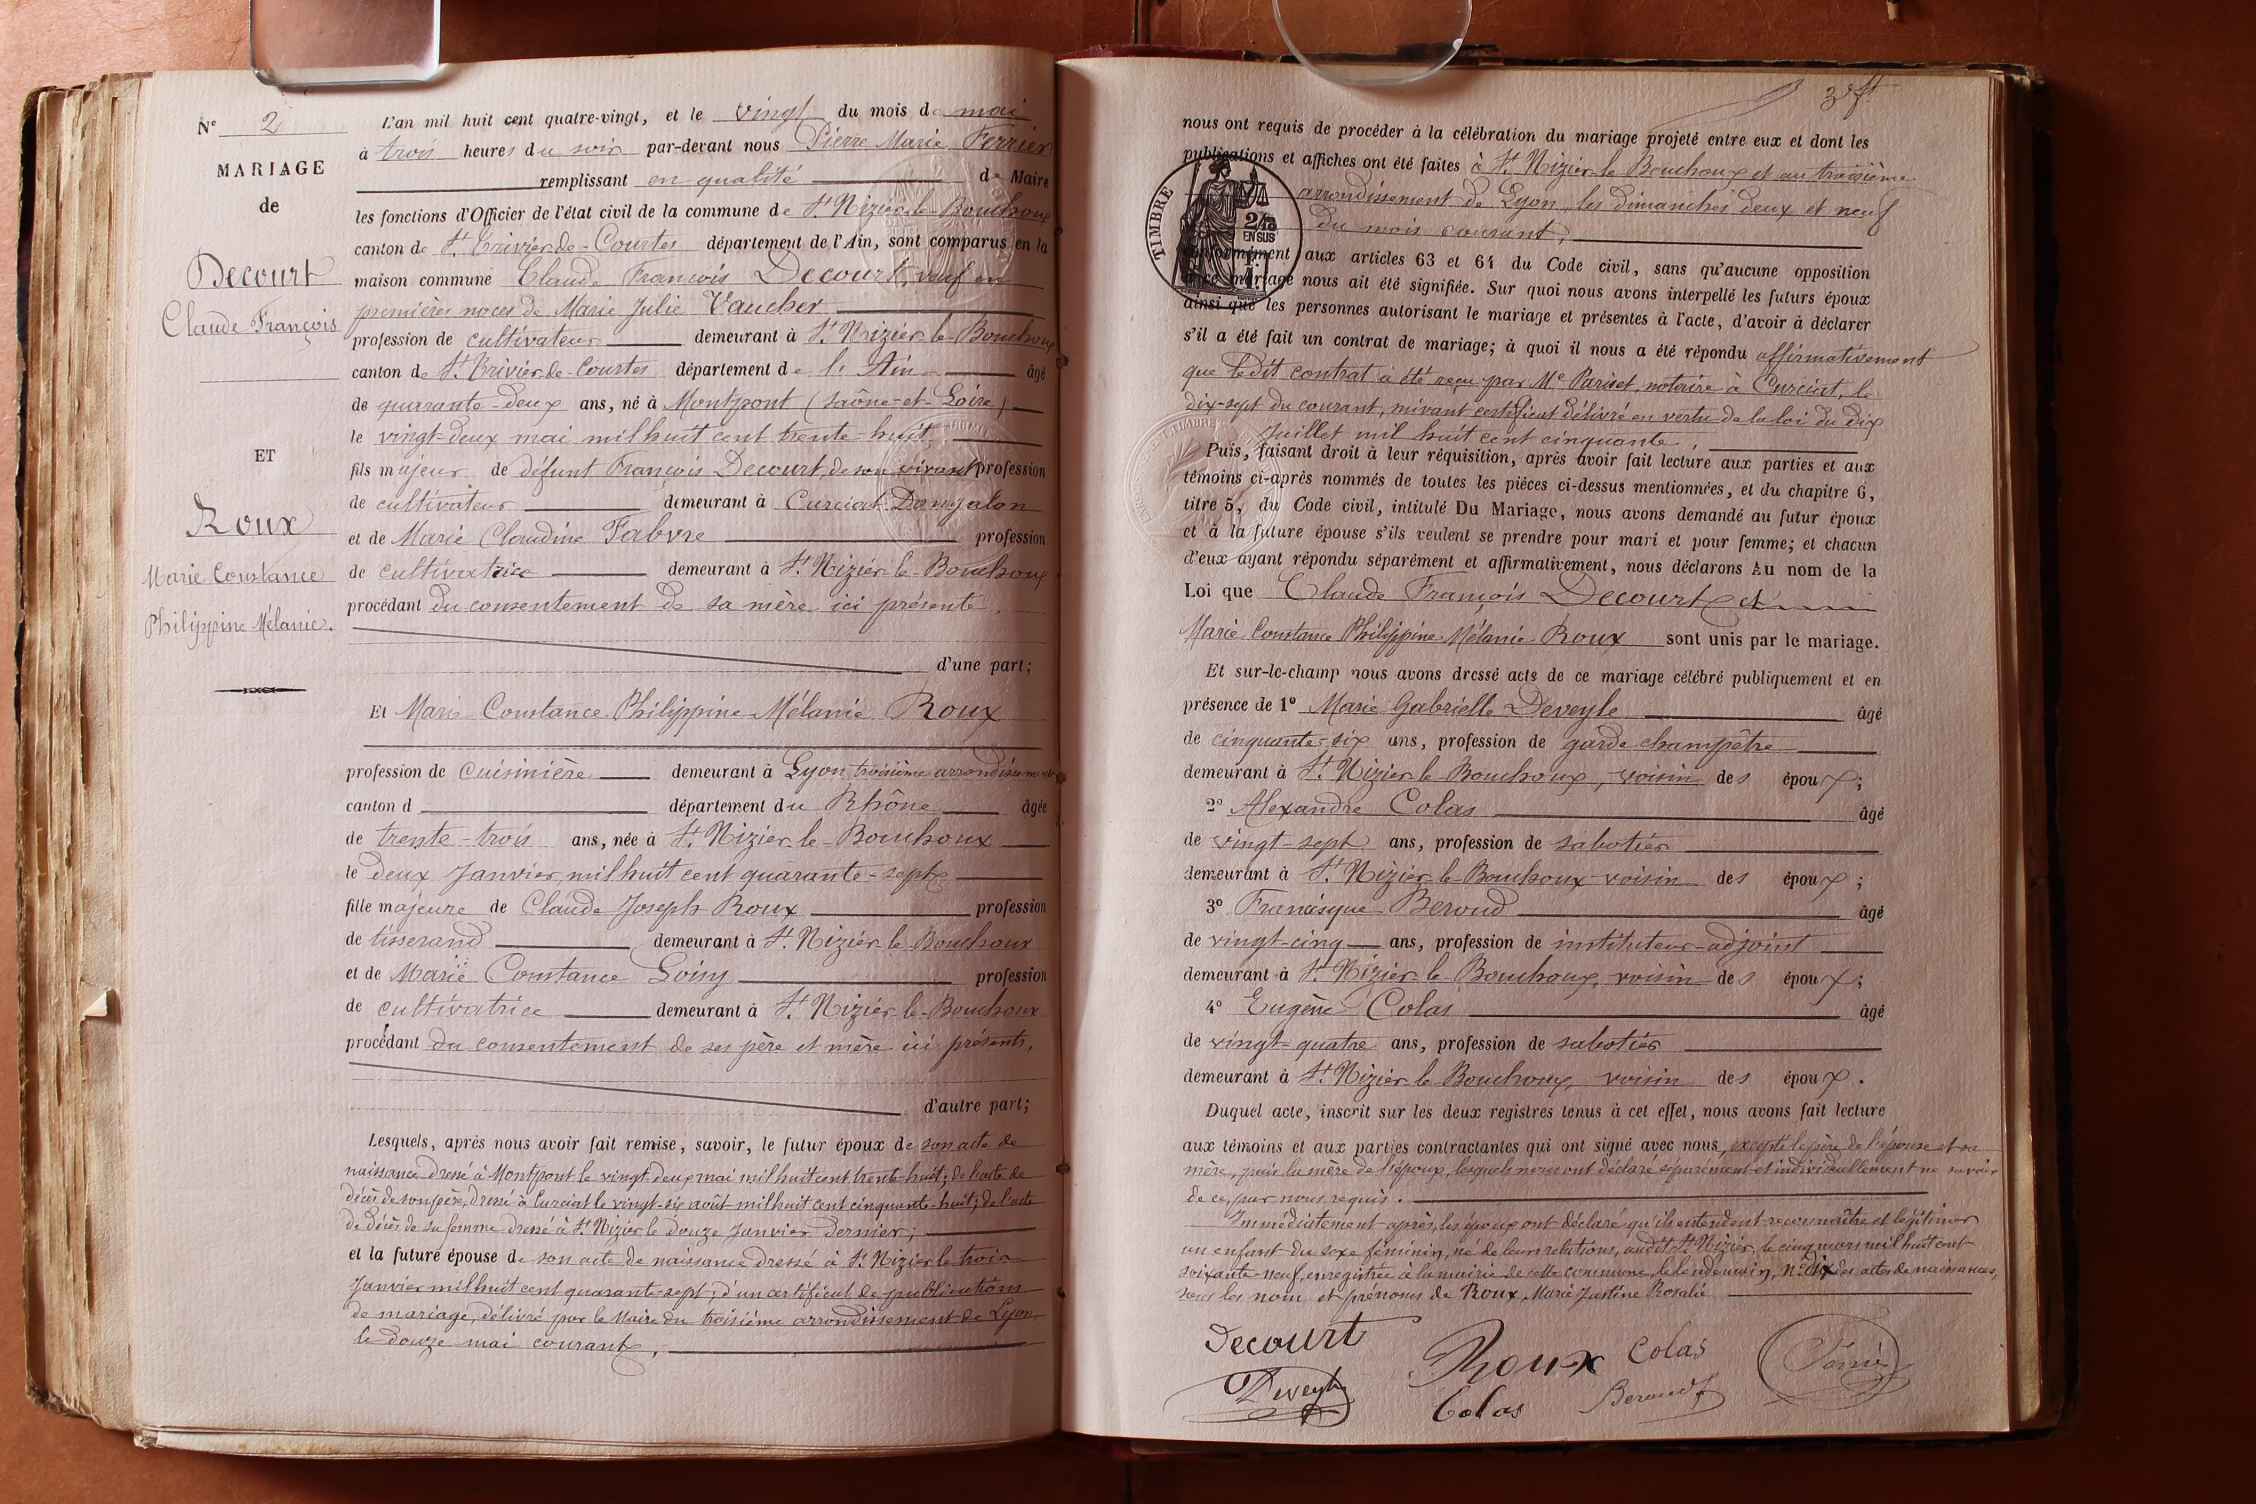 N° 2
MARIAGE
de
Decourt
Claude François
ET
Roux
Marie Constance
Philippine Mélanie.
L'an mil huit cent quatre-vingt, et le vingt du mois de mai
à trois heures du soir par-devant nous Pierre Marie Ferrier
remplissant en qualité de Maire
les fonctions d'Officier de l'état civil de la commune de St Nizier-le-Bouchoux
canton de St Trivier-de-Courtes département de l'Ain, sont comparus en la
maison commune Claude François Decourt, veuf en
premières noces de Marie Julie Vaucher
profession de cultivateur demeurant à St Nizier-le-Bouchoux
canton de St Trivier-de-Courtes département de l'Ain âgé
de quarante-deux ans, né à Montpont (Saône-et-Loire)
le vingt-deux mai mil huit cent trente-huit,
fils majeur de défunt François Decourt, de son vivant profession
de cultivateur demeurant à Curciat-Dongalon
et de Marie Claudine Fabvre profession
de cultivatrice demeurant à St Nizier-le-Bouchoux
procédant du consentement de sa mère ici présente,
d'une part;
Et Marie Constance Philippine Mélanie Roux
profession de cuisinière demeurant à Lyon, troisième arrondissement
canton d département du Rhône âgée
de trente-trois ans, née à St Nizier-le-Bouchoux
le deux Janvier mil huit cent quarante-sept
fille majeure de Claude Joseph Roux profession
de tisserand demeurant à St Nizier-le-Bouchoux
et de Marie Constance Loisy profession
de cultivatrice demeurant à St Nizier-le-Bouchoux
procédant du consentement de ses père et mère ici présents,
d'autre part;
Lesquels, après nous avoir fait remise, savoir, le futur époux de son acte de
naissance dressé à Montpont le vingt-deux mai mil huit cent trente-huit; de l'acte de
décès de son père, dressé à Curciat le vingt-six août mil huit cent cinquante-huit; de l'acte
de décès de sa femme dressé à St Nizier le douze Janvier dernier;
et la future épouse de son acte de naissance dressé à St Nizier le trois
Janvier mil huit cent quarante-sept; d'un certificat de publications
de mariage, délivré par le Maire du troisième arrondissement de Lyon
le douze mai courant,
3 ft
nous ont requis de procéder à la célébration du mariage projeté entre eux et dont les
publications et affiches ont été faites à St Nizier-le-Bouchoux et au troisième
arrondissement de Lyon, les dimanches deux et neuf
du mois courant,
TIMBRE
2/10
EN SUS
conformément aux articles 63 et 64 du Code civil, sans qu'aucune opposition
à ce mariage nous ait été signifiée. Sur quoi nous avons interpellé les futurs époux
ainsi que les personnes autorisant le mariage et présentes à l'acte, d'avoir à déclarer
s'il a été fait un contrat de mariage; à quoi il nous a été répondu affirmativement
que ledit contrat a été reçu par Me Pariset, notaire à Curciat, le
dix-sept du courant, suivant certificat délivré en vertu de la loi du dix
Juillet mil huit cent cinquante.
Puis, faisant droit à leur réquisition, après avoir fait lecture aux parties et aux
témoins ci-après nommés de toutes les pièces ci-dessus mentionnées, et du chapitre 6,
titre 5, du Code civil, intitulé Du Mariage, nous avons demandé au futur époux
et à la future épouse s'ils veulent se prendre pour mari et pour femme; et chacun
d'eux ayant répondu séparément et affirmativement, nous déclarons Au nom de la
Loi que Claude François Decourt et
Marie Constance Philippine Mélanie Roux sont unis par le mariage.
Et sur-le-champ nous avons dressé acte de ce mariage célébré publiquement et en
présence de 1° Marie Gabrielle Deveyle âgé
de cinquante-six ans, profession de garde champêtre
demeurant à St Nizier-le-Bouchoux, voisin des époux;
2° Alexandre Colas âgé
de vingt-sept ans, profession de sabotier
demeurant à St Nizier-le-Bouchoux voisin des époux;
3° Francisque Beroud âgé
de vingt-cinq ans, profession de instituteur-adjoint
demeurant à St Nizier-le-Bouchoux, voisin des époux;
4° Eugène Colas âgé
de vingt-quatre ans, profession de sabotier
demeurant à St Nizier-le-Bouchoux, voisin des époux.
Duquel acte, inscrit sur les deux registres tenus à cet effet, nous avons fait lecture
aux témoins et aux parties contractantes qui ont signé avec nous, excepté le père de l'épouse et sa
mère, puis la mère de l'époux, lesquels nous ont déclaré séparément et individuellement ne savoir
de ce, par nous requis.
Immédiatement après, les époux ont déclaré qu'ils entendent reconnaître et légitimer
un enfant du sexe féminin, né de leurs relations, audit St Nizier, le cinq mars mil huit cent
soixante-neuf, enregistrée à la mairie de cette commune, le lendemain, N° dix des actes de naissances,
sous les nom et prénoms de Roux, Marie Justine Rosalie
Decourt
Roux
Colas
Deveyle
Colas
Beroud